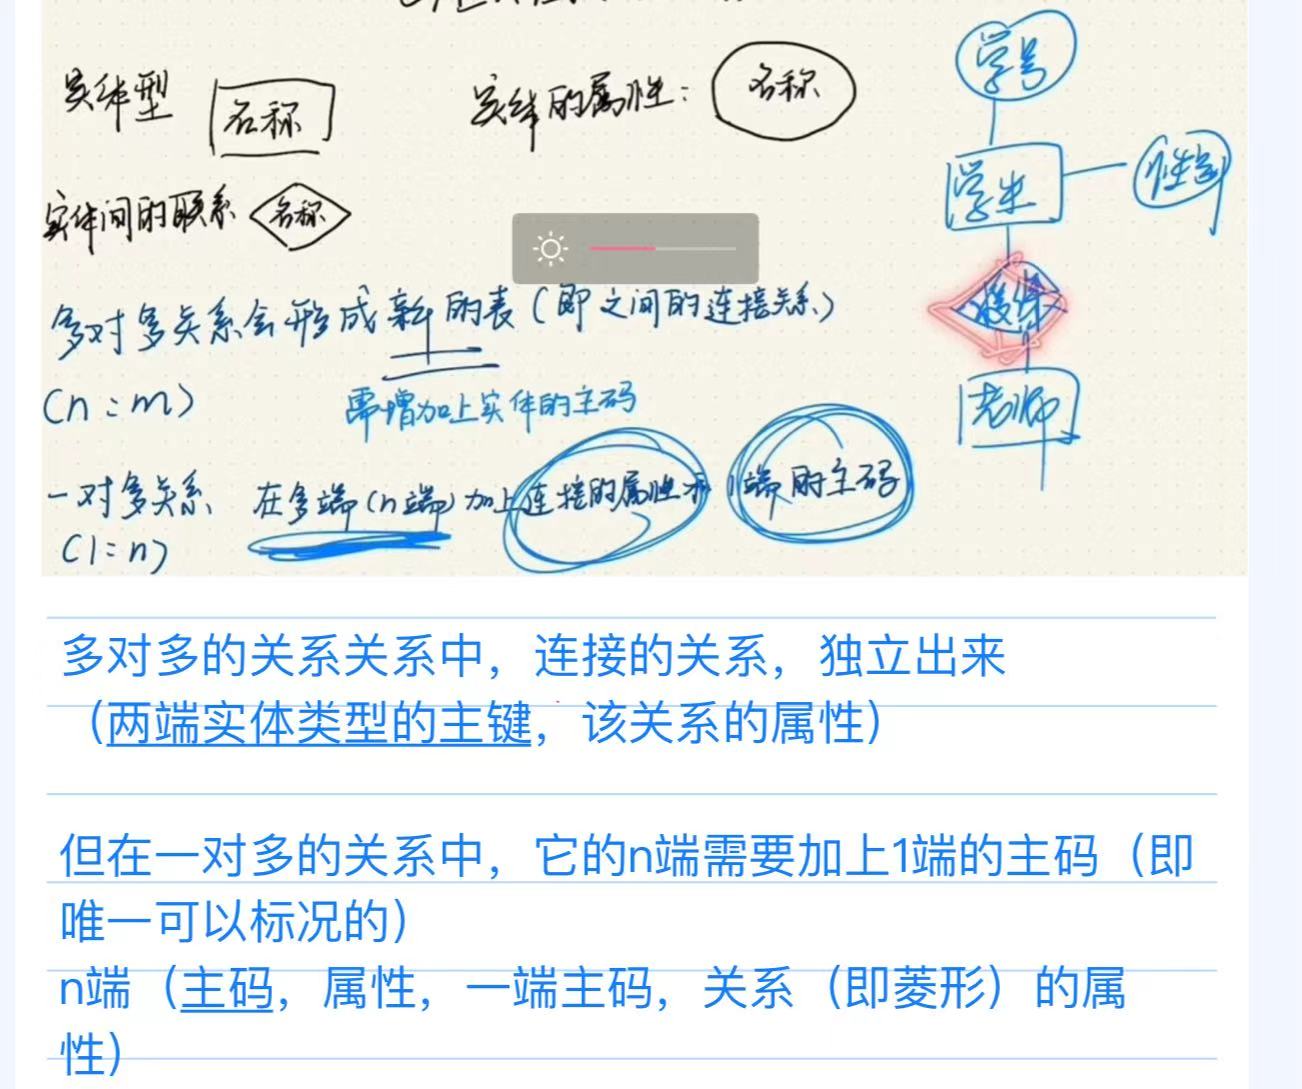 实体型 名称 实体的属性: 名称
学号
学生 性别
实体间的联系 名称
多对多关系会形成新的表(即之间的连接关系)
(n:m) 需增加上实体的主码
老师
一对多关系 在多端(n端)加上连接的属性和1端的主码
(1:n)
多对多的关系关系中，连接的关系，独立出来
（两端实体类型的主键，该关系的属性）
但在一对多的关系中，它的n端需要加上1端的主码（即
唯一可以标况的）
n端（主码，属性，一端主码，关系（即菱形）的属
性）